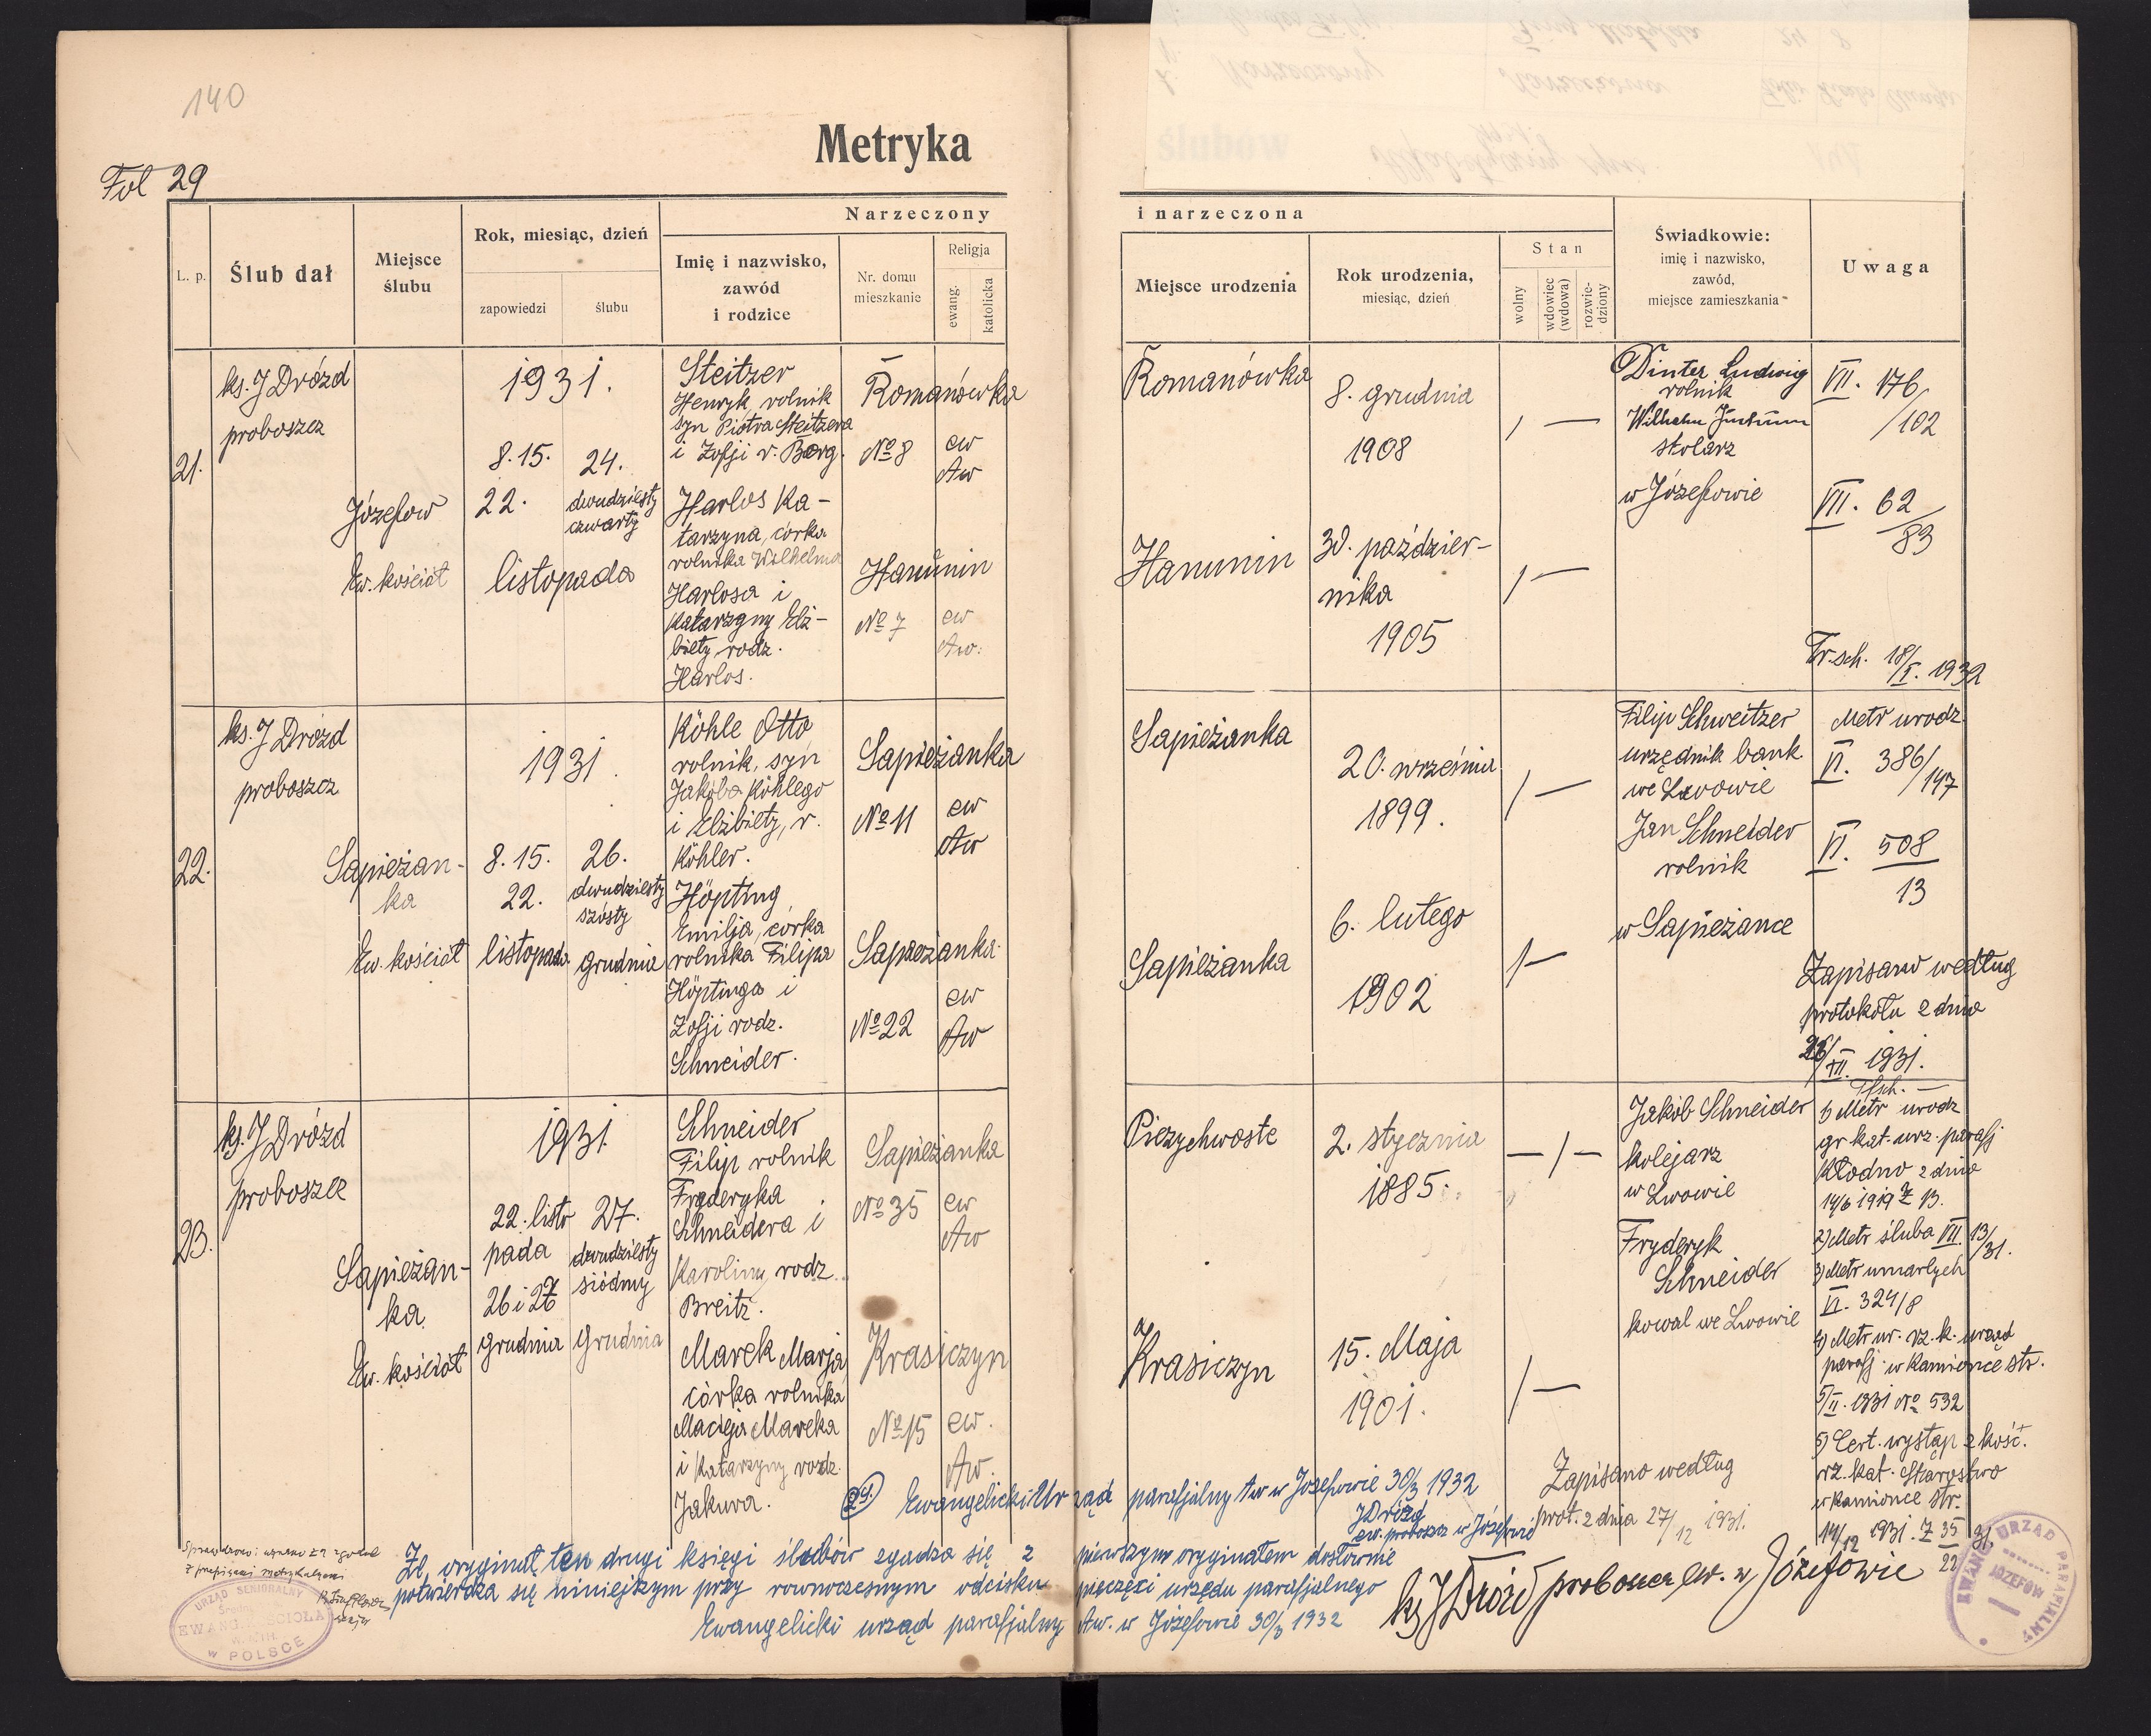 140
Metryka
Fol 29
Narzeczony
i narzeczona
L. p.
Ślub dał
Miejsce
ślubu
Rok, miesiąc, dzień
zapowiedzi
ślubu
Imię i nazwisko,
zawód
i rodzice
Nr. domu
mieszkanie
Religja
ewang.
katolicka
Miejsce urodzenia
Rok urodzenia,
miesiąc, dzień
Stan
wolny
wdowiec
(wdowa)
rozwie-
dziony
Świadkowie:
imię i nazwisko,
zawód,
miejsce zamieszkania
Uwaga
21.
ks. J Drózd
proboszcz
Józefow
Ew. kościół
1931.
8. 15.
22.
listopada
24.
dwudziesty
czwarty
Steitzer
Henryk, rolnik
syn Piotra Steitzera
i Zofji r. Borg.
Romanówka
№ 8
ew
Aw
Harlos Ka-
tarzyna, córka
rolnika Wilhelma
Harlosa i
Katarzyny Elż-
biety rodz.
Harlos.
Hanunin
№ 7
ew
Aw.
Romanówka
8. grudnia
1908
/ —
Hanunin
30. paździer-
nika
1905
/ —
Dinter Ludwig
rolnik
Wilhelm
stolarz
w Józefowie
VII. 176/
/102
VII. 62/
83
Tr. sch. 18/I. 1932
22.
ks. J Drózd
proboszcz
Sapieżan-
ka
Ew. kościół
1931.
8. 15.
22.
listopada
26.
dwudziesty
szósty
grudnia
Köhle Otto
rolnik, syn
Jakóba Köhlego
i Elżbiety, r.
Köhler.
Sapieżanka
№ 11
ew
Aw
Höpting
Emilja, córka
rolnika Filipa
Höptinga i
Zofji rodz.
Schneider.
Sapieżanka
№ 22
ew
Aw
Sapieżanka
20. września
1899.
/ —
Sapieżanka
6. lutego
1902
/ —
Filip Schweitzer
urzędnik bank.
we Lwowie
Jan Schneider
rolnik
w Sapieżance
Metr urodz.
VI. 386/
147
VI. 508
13
Zapisano według
protokołu z dnia
26/XII. 1931.
23.
ks. J Drózd
proboszcz
Sapieżan-
ka.
Ew. kościół
1931
22. listo
pada
26 i 27
grudnia
27.
dwudziesty
siódmy
grudnia
Schneider
Filip rolnik
Fryderyka
Schneidera i
Karoliny rodz.
Breitz.
Sapieżanka
№ 35
ew
Aw
Marek Marja
córka rolnika
Macieja Mareka
i Katarzyny rodz.
Jakura.
Krasiczyn
№ 15
ew.
Aw.
Piezychwoste
2. stycznia
1885.
— / —
Krasiczyn
15. Maja
1901.
/ —
Jakób Schneider
kolejarz
w Lwowie
Fryderyk
Schneider
kowal we Lwowie
1) Metr urodz
gr kat. urz. parafj
Kłodno z dnia
14/6 1919 Z 13.
2) Metr ślubu VII. 13/31.
3) Metr umarłych
VI. 324/8
4) Metr ur. rz. k. urząd
parafj. w Kamionce str.
5/II. 1931 № 532
5) Cert. wystąp z kość.
rz. kat. Starostwo
w Kamionce str.
14/12 1931. Z 35
22/31.
Zapisano według
prot. z dnia 27/12 1931.
Ewangelicki Urząd parafjalny Aw w Józefowie 30/3 1932
J Drózd
ew. proboszcz w Józefowie
Że, oryginał ten drugi księgi ślubów zgadza się z pierwszym oryginałem dosłownie
potwierdza się niniejszym przy równoczesnym odcisku pieczęci urzędu parafjalnego
Ewangelicki urząd parafjalny Aw. w Józefowie 30/3 1932
ks J Drózd proboszcz ew. w Józefowie
URZĄD SENIORALNY
EWANG. KOŚCIOŁA
W POLSCE
EWANG. URZĄD PARAFIALNY
JÓZEFÓW